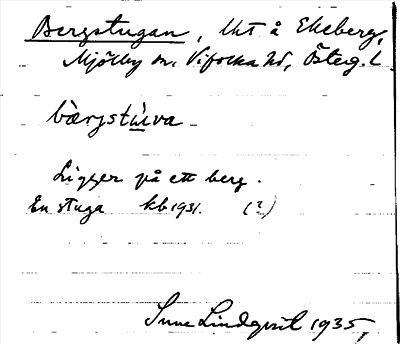 Bergstugan, lht å Ekeberg,
Mjölby sn, Vifolka hd, Österg. l.
bær̀jstùva
Ligger på ett berg.
En stuga kb 1931. (?)
Sune Lindqvist 1935,